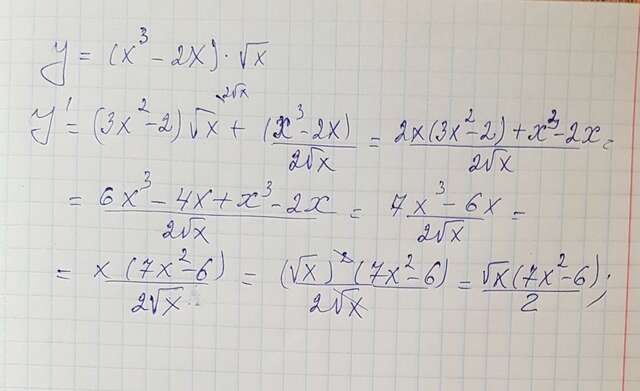 y = (x³ - 2x) · √x
y' = (3x² - 2)√x + (x³ - 2x)/2√x = 2x(3x² - 2) + x³ - 2x/2√x =
= 6x³ - 4x + x³ - 2x/2√x = 7x³ - 6x/2√x =
= x(7x² - 6)/2√x = (√x)²(7x² - 6)/2√x = √x(7x² - 6)/2;